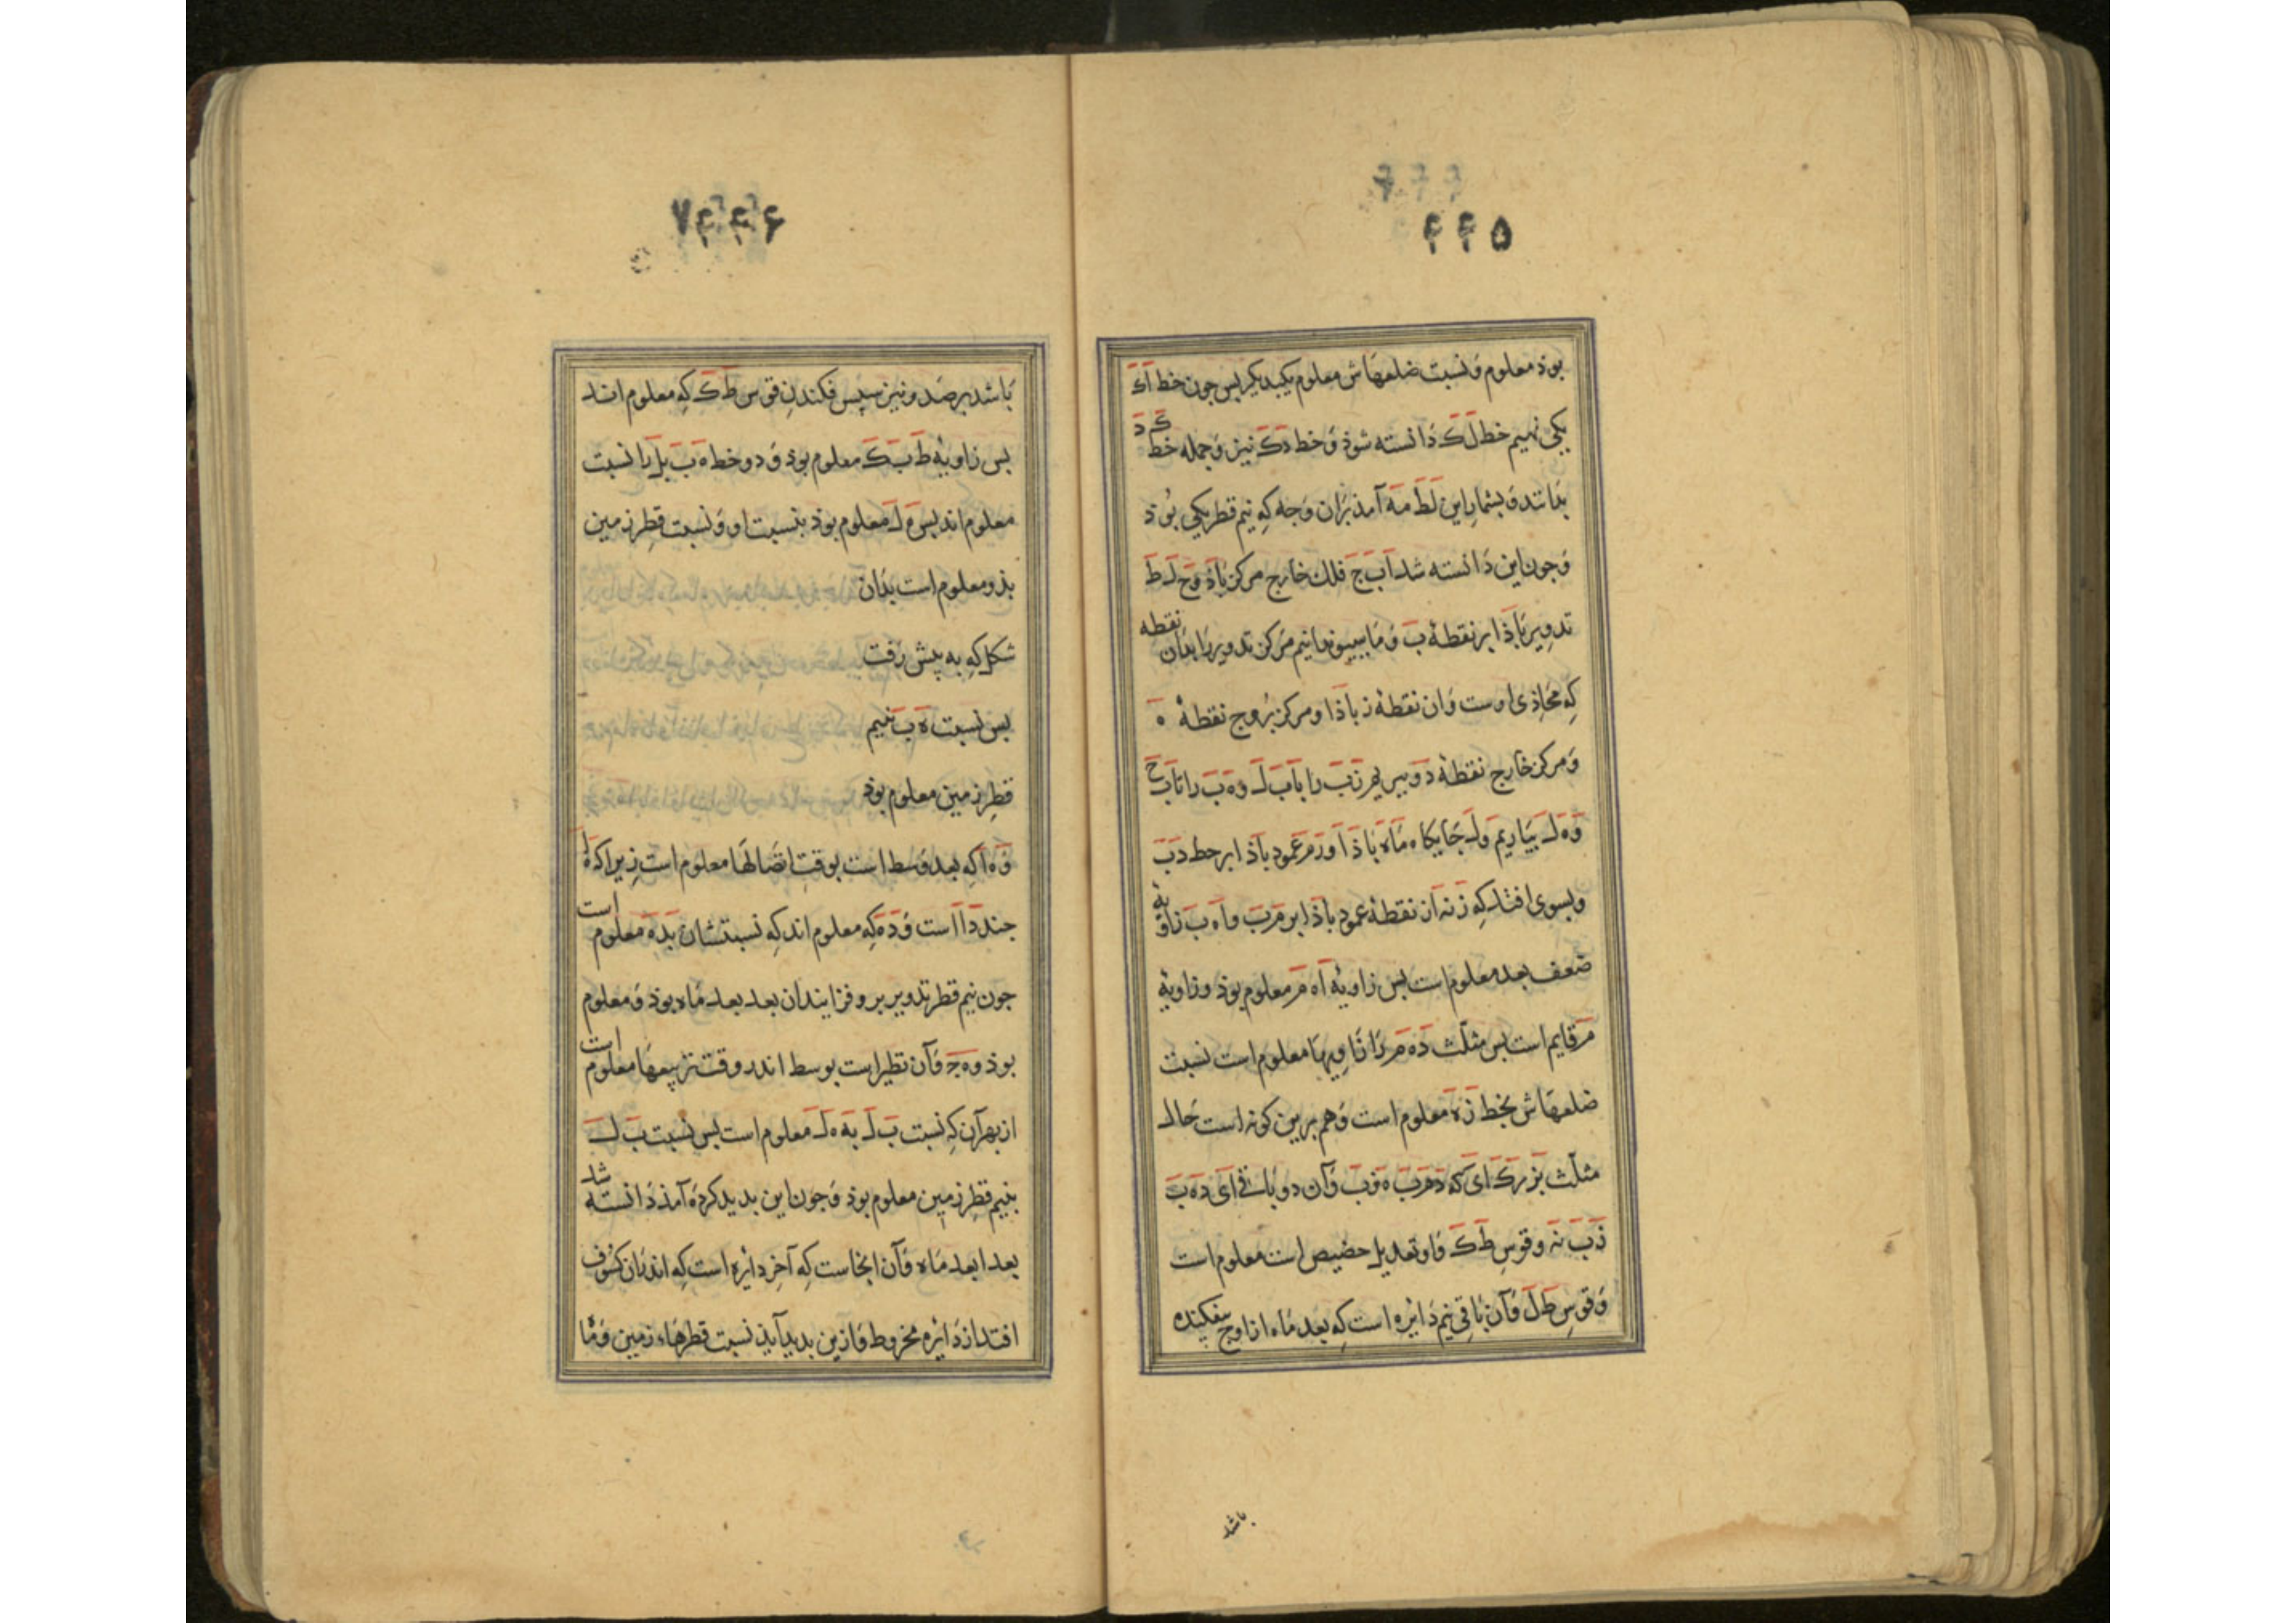 ۴۴۵
بوذ معلوم وَنسبت ضلعهَاش معلوم یکبدیکر بس جون خط اَکَ
یکی نهیم خط لَکَ دَانسته شوذ وَ خط دَکَ نیز وَجمله خط کَدَ
بدَانند وَ بشمارِ این لَطَ مَه آمذ بَرَان وَجه کهِ نیم قطر یکی بُوَذ
وَجون این دَانسته شد اَبَجَ فلك خَارج مرکز بَاذ وَحَ لَ طَ
تدویر بَاذ ابر نقطهٔ بَ وَ مَا ببینونه نهیم مَرکز تدویر رَا بدَان نقطه
کهِ مُحَاذی اوست وَان نقطهٔ ز باذا و مرکز بُروج نقطهٔ هَ
وَمرکز خَارج نقطهٔ دَ وبیریم زَبَ رَا بَابَ لَ وهَ بَ را تابَ حَ
وَهَ لَ بیَاریم وَلَ جَایکاه مَاه باذ اَ وَزَمَ عمود باذ ابر خط دَبَ
وبسوی افتد کهِ زَ نه از نقطهٔ عمود بَاذ ابر مَربَ و اَهَ بَ زاویهٔ
ضعف بعد معلوم است بس زاویهٔ اَه مَر معلوم بوذ و زاویهٔ
مَر قایم است بس مثلّث دَه مَر رَا زَاویهَا معلوم است نسبت
ضلعهَاش بخط زَهَ معلوم است وَهم برین کونه است حَال
مثلّث بَزرَکَ ای که دَمَربَ هَ وَبَ وَآن دو باقی اَی دَه بَ
ذَبَ نَه و قوسِ طَکَ وَاو تعدیل حضیض است معلوم است
وَقوسِ طَلَ وَآن بَاقی نیم دَایره است کهِ بعد مَاه از اوج بیفکنده
باشد
۷۴۴۶
بَاشد برصَد و نیز سپس فکندنِ قوس طَکَ کهِ معلوم اند
بس زاویهٔ طَ بَ کَ معلوم بوذ وَ دو خط هَ بَ بَلَ رَا نسبت
معلوم اند بس هَ لَ معلوم بوذ بنسبت او وَ نسبت قطرِ زمین
بذو معلوم است بدَان
شکل کهِ به پیش رَفت
بس نسبت هَ بَ بنیم
قطرِ زمین معلوم بوذ
وَهَ اَ کهِ بعد وَسط است بوقتِ اتصَالهَا معلوم است زیراکه هَا
جند دَ اَ است وَ دَهَ کهِ معلوم اند کهِ نسبتشان بدَهَ معلوم است
جون نیم قطر تدویر برو فزایند آن بعد بعد مَاه بوذ وَ معلوم
بوذ وهَ جَ وَآن نظیر است بوسط اندر وقت تربیعهَا معلوم است
از بهر آن کهِ نسبت بَ لَ بَه هَ لَ معلوم است بس نسبت بَ لَ
بنیم قطرِ زمین معلوم بوذ وَجون این بدید کردَه آمذ دَانسته شد
بعد ابعد مَاه وَآن انجاست کهِ آخرِ دَایره است کهِ اندرَان کسُوف
افتد از دَایره مخروط وَ ازین بدید آیذ نسبت قطرهَاء زمین وَ مَاْ